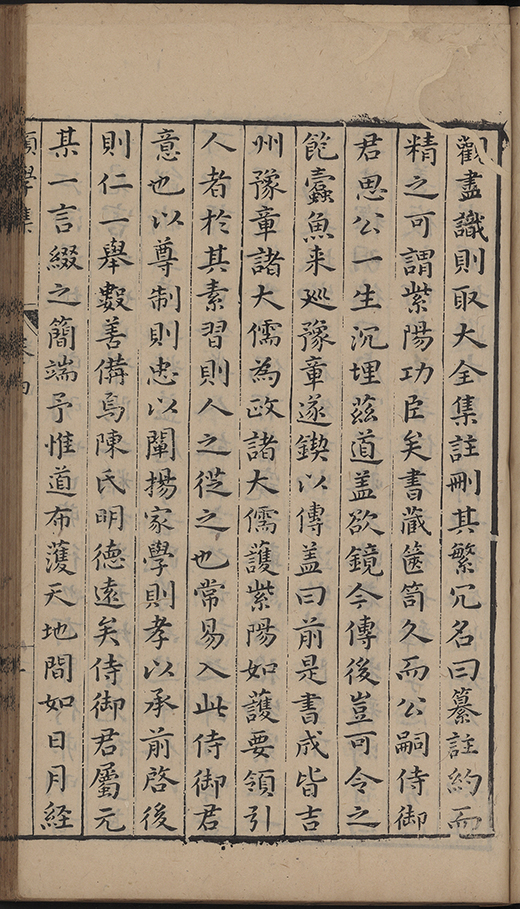 觀盡識則取大全集註刪其繁冗名曰纂註約而
精之可謂紫陽功臣矣書蔵篋笥久而公嗣侍御
君思公一生沉埋茲道盖欲鏡今傳後豈可令之
飽蠹魚来巡豫章遂鍥以傳盖曰前是書成皆吉
州豫章諸大儒為政諸大儒護紫陽如護要領引
人者於其素習則人之從之也常易入此侍御君
意也以尊制則忠以闡揚家學則孝以承前啓後
則仁一舉數善備焉陳氏明德遠矣侍御君屬元
某一言綴之簡端予惟道布濩天地間如日月経
學集